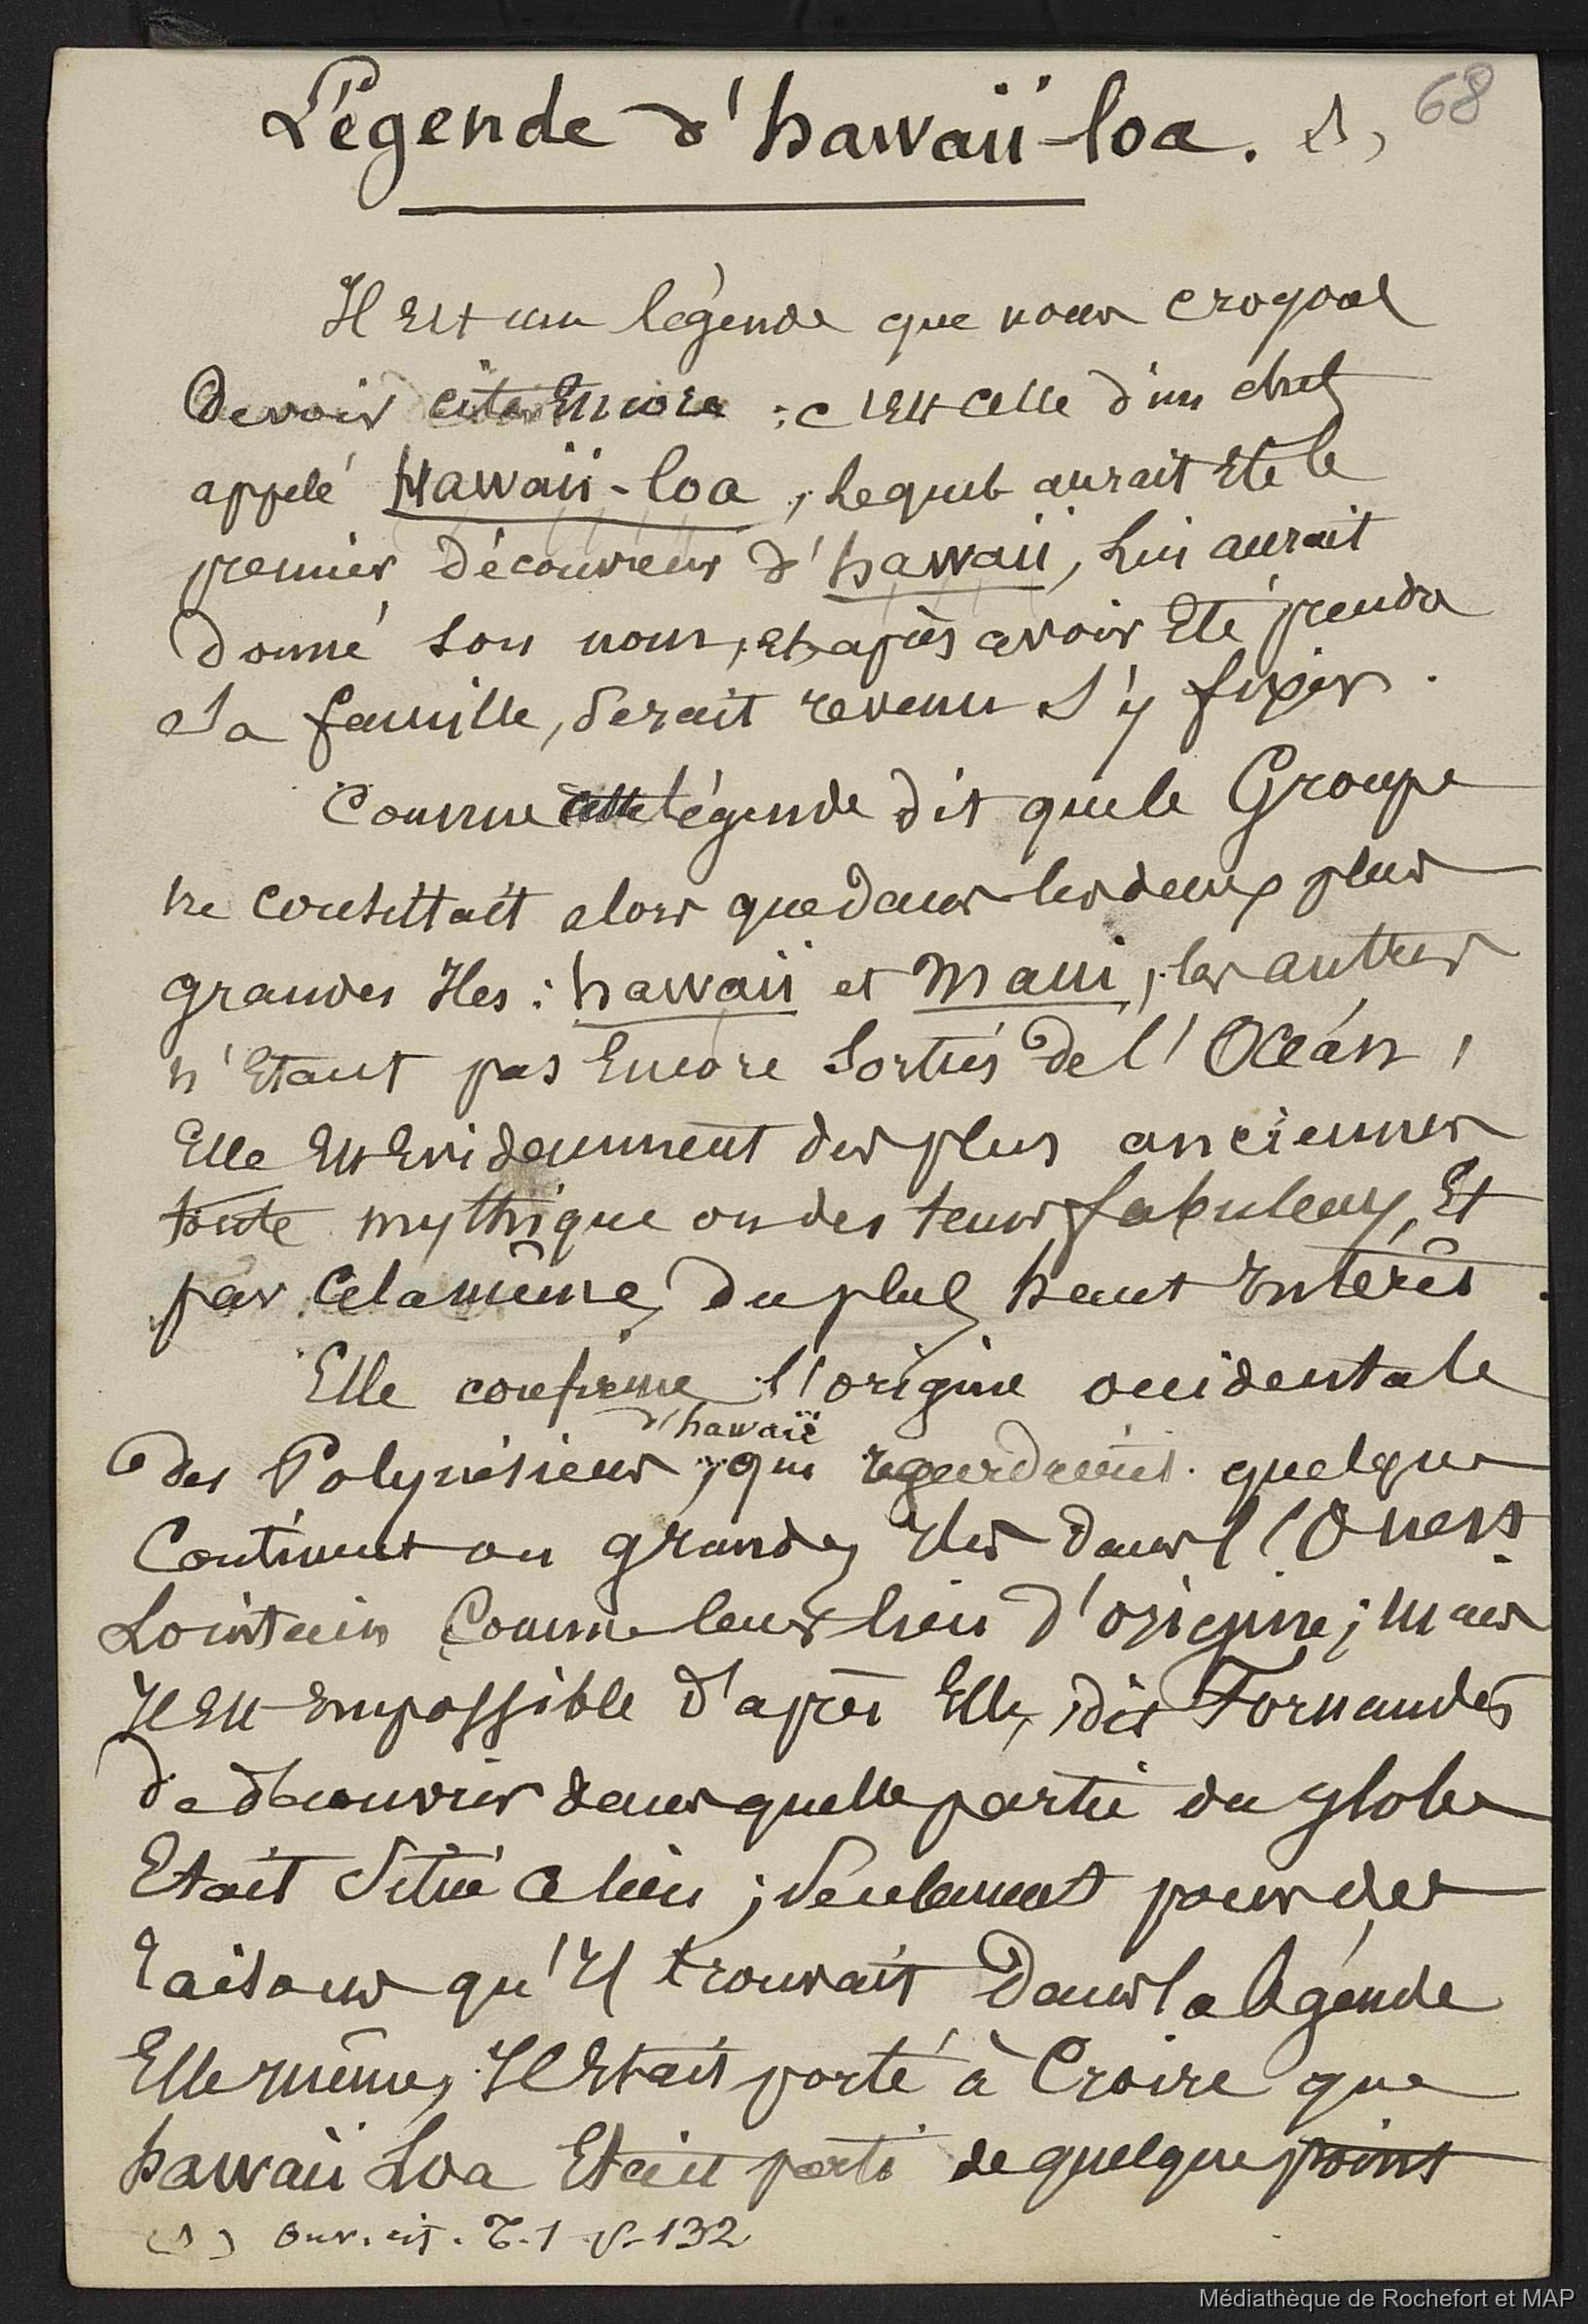 68
Légende d'hawaii-loa. (1)
Il est une légende que nous croyons
devoir citer Encore : c'est celle d'un chef
appelé Hawaii-loa, lequel aurait Eté le
premier découvreur d'hawaii, lui aurait
donné son nom, et après avoir Eté prendre
sa famille, serait revenu s'y fixer.
Comme cette légende dit que le Groupe
ne consistait alors que dans les deux plus
grandes Iles : hawaii et Maui, les autres
n'Etant pas Encore sorties de l'Océan,
Elle Est Evidemment des plus anciennes
toute mythique ou des tems fabuleux, Et
par cela même, du plus haut Intérêt.
Elle confirme l'origine occidentale
d'hawaii
des Polynésiens, qui regardaient quelque
Continent ou grandes Iles dans l'Ouest
Lointain Comme leur lieu d'origine; mais
Il Est Impossible d'après Elle, dit Fornander
de découvrir dans quelle partie du globe
Etait Situé ce lieu; Seulement pour des
raisons qu'Il trouvait dans la légende
Elle même, Il Etait porté à Croire que
hawaii Loa Etait parti de quelque point
(1) Ouv. cit. T. 1 p. 132
Médiathèque de Rochefort et MAP